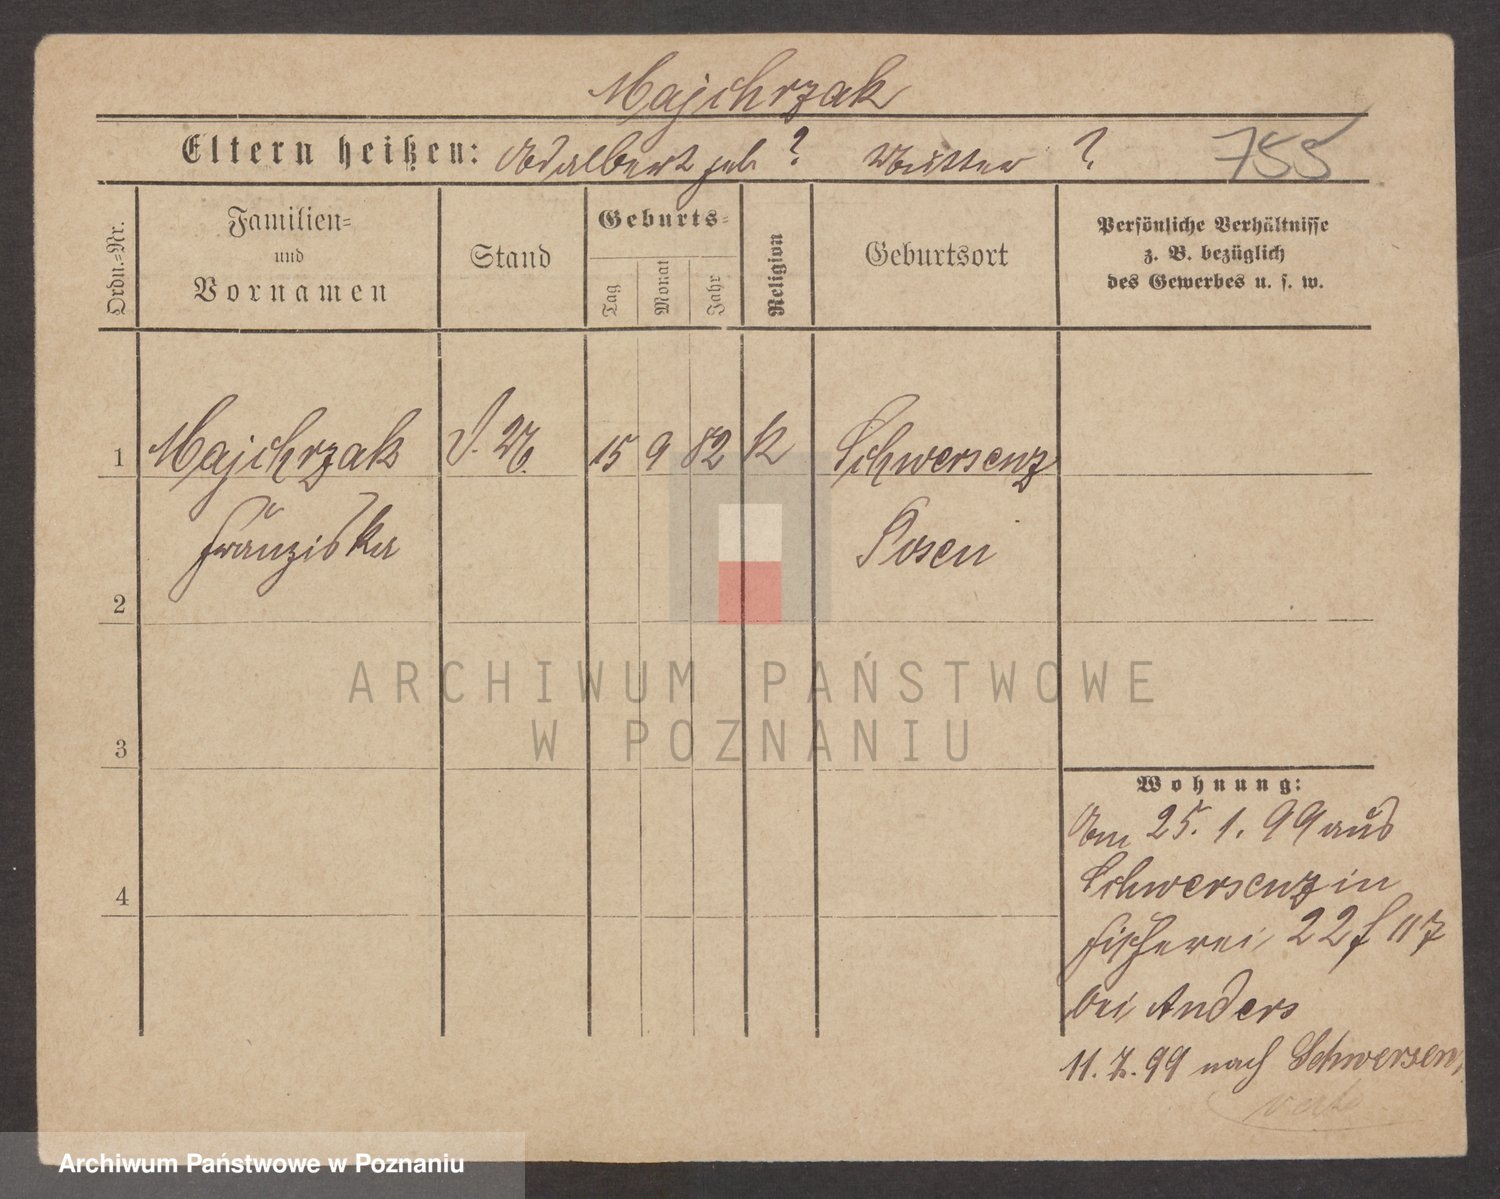 Majchrzak
Eltern heißen: Adalbert geb ? Mutter ?
755
Ordn.-Nr.
Familien-
und
Vornamen
Stand
Geburts-
Tag
Monat
Jahr
Religion
Geburtsort
Persönliche Verhältnisse
z. B. bezüglich
des Gewerbes u. s. w.
1 Majchrzak 15 9 82 K Schwersenz
Franziska Posen
2
3
4
ARCHIWUM PAŃSTWOWE
W POZNANIU
Wohnung:
Am 25. 1. 99 aus
Schwersenz in
Fischerei 22
bei Anders
11. 7. 99 nach Schwersenz
Archiwum Państwowe w Poznaniu